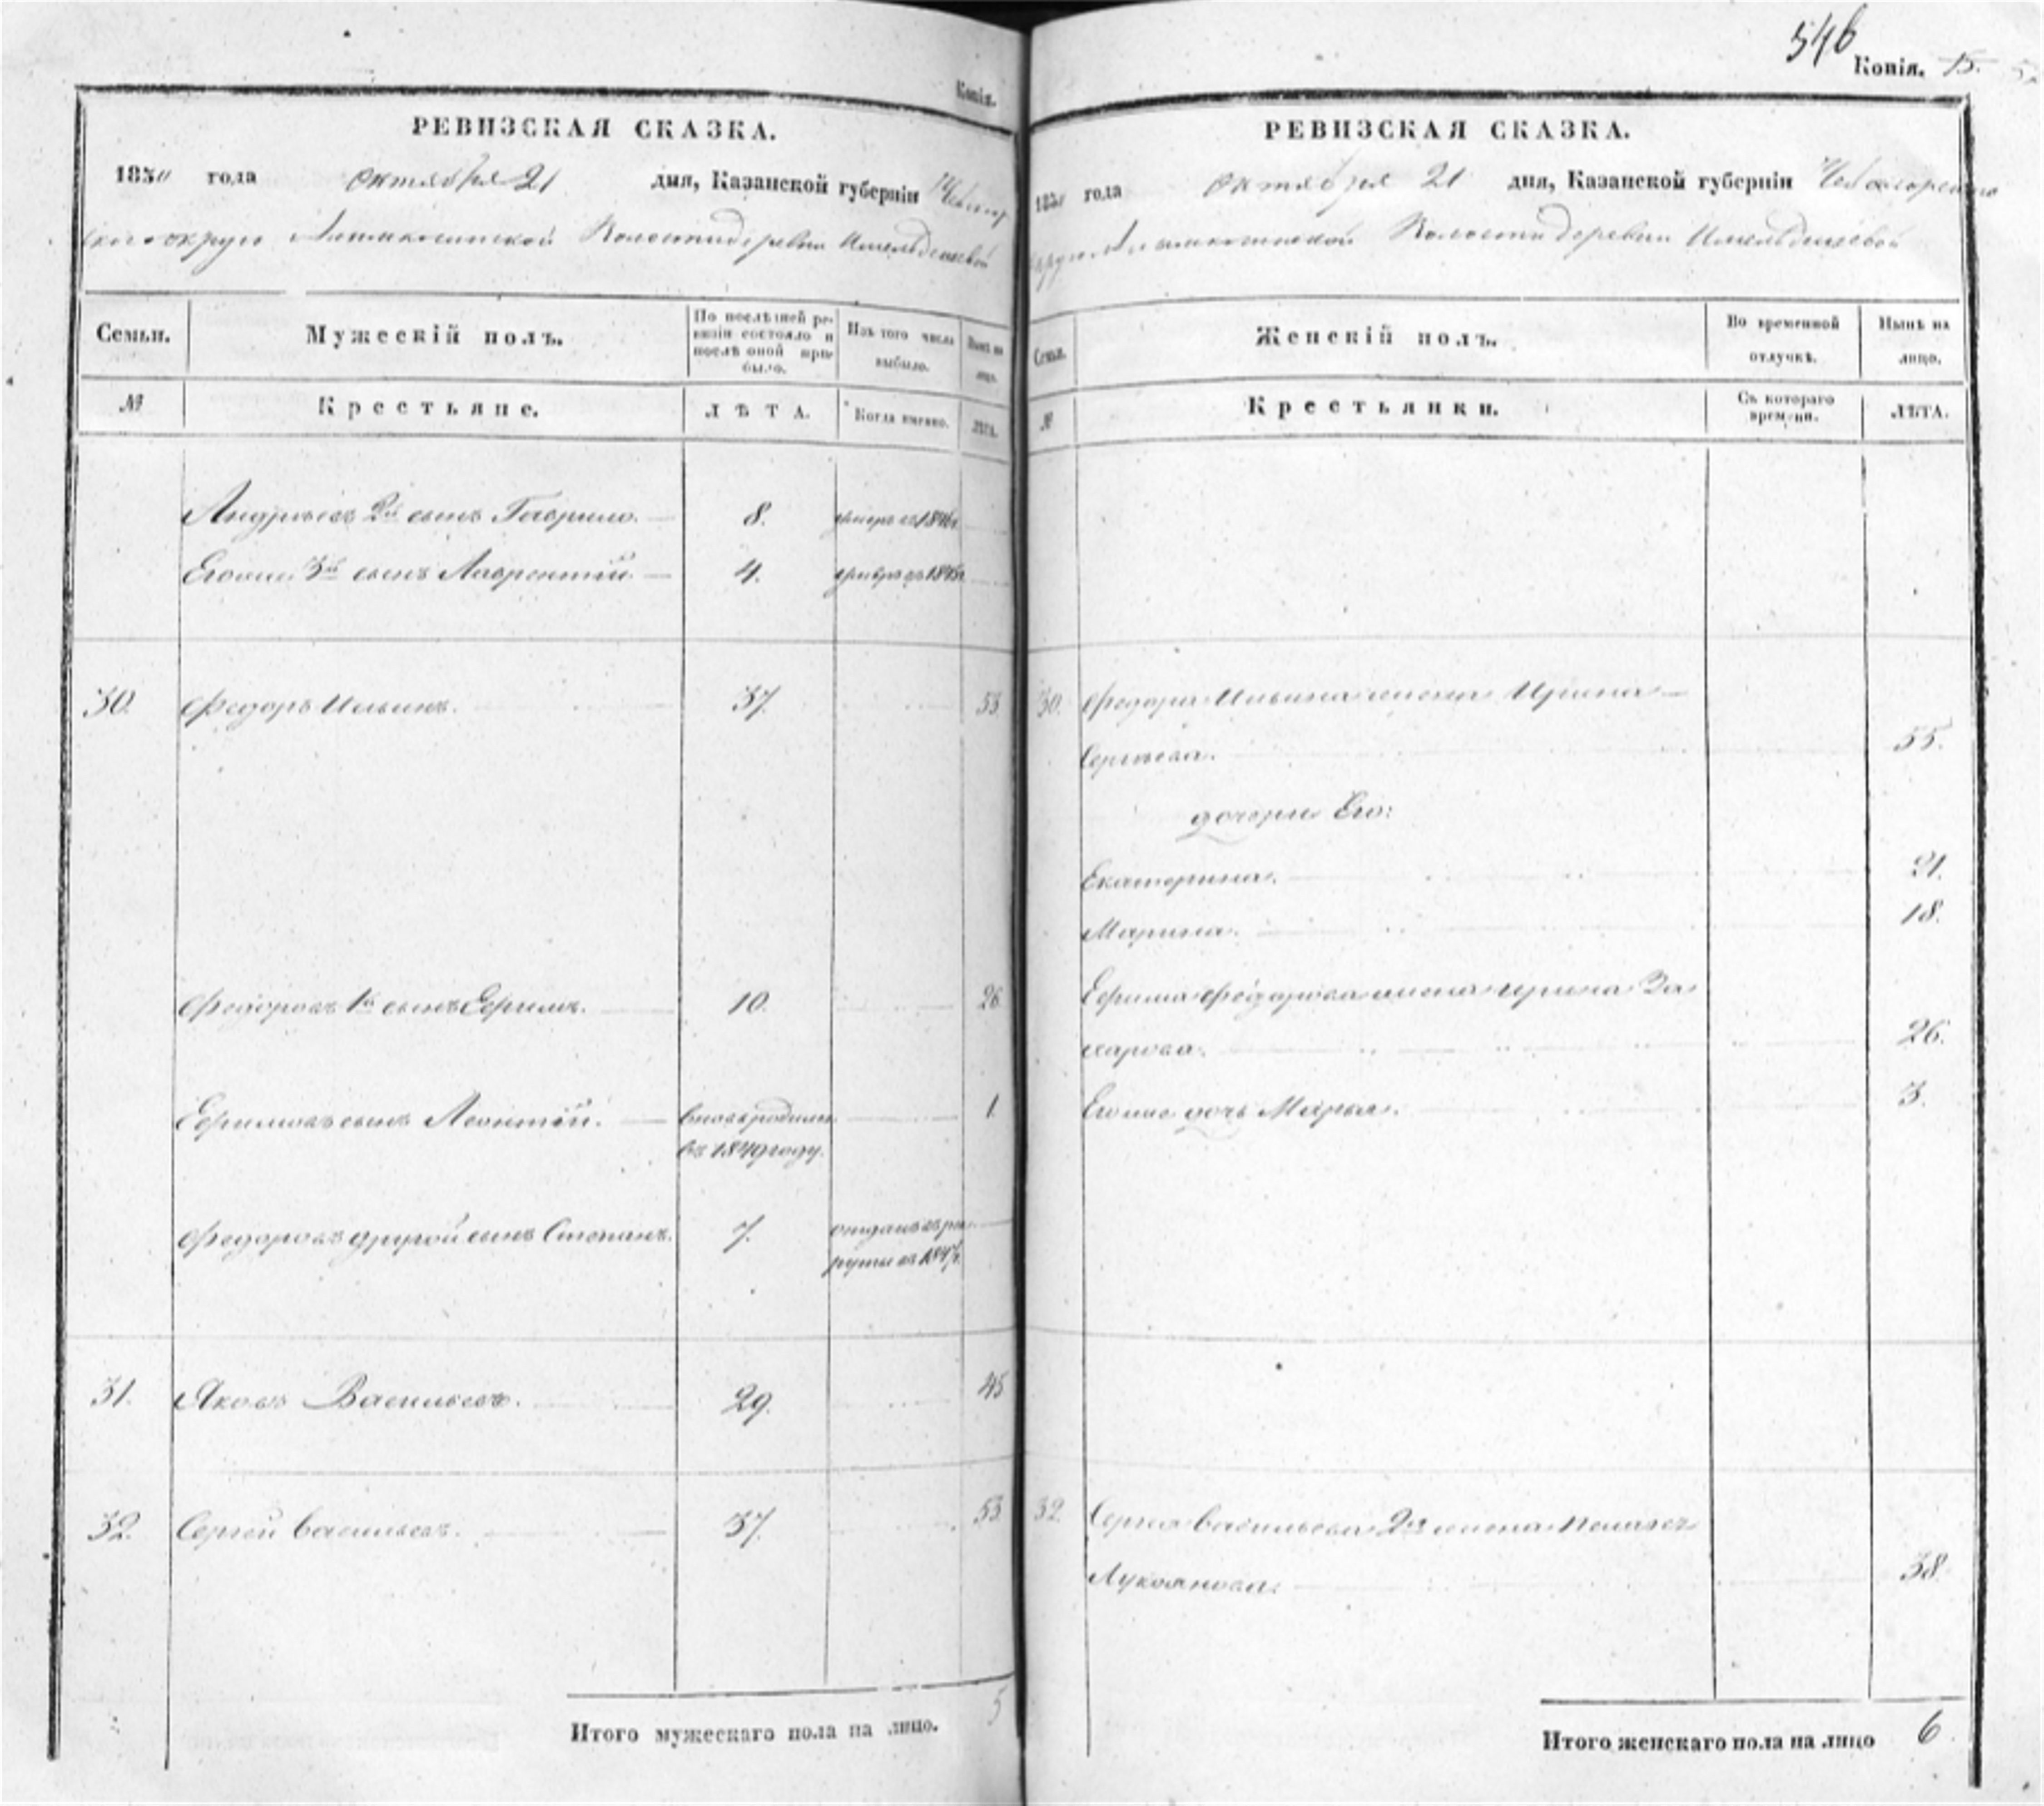 Копія.
РЕВИЗСКАЯ СКАЗКА.
1850 года октября 21 дня, Казанской губерніи Чебоксар
скаго округа Волости деревни
Семьи. Мужескій полъ. По послѣдней ре-
визіи состояло и
послѣ оной при-
было. Изъ того числа
выбыло. Нынѣ на
лицо.
№ Крестьяне. ЛѢТА. Когда именно. ЛѢТА.
Андреевъ 2й сынъ Гаврило. 8. умеръ въ
Егоже 3й сынъ Лаврентій. 4.
30. Федоръ Ильинъ. 37. 53
Федоровъ 1й сынъ Ефримъ. 10. 26
Ефримовъ сынъ Леонтій. вновь рожденъ 1
въ 1849 году.
Федоровъ другой сынъ Степанъ. 7. отданъ въ рек
руты въ 1847г.
31. Яковъ Васильевъ. 29. 45
32. Сергѣй Васильевъ. 37. 53
Итого мужескаго пола на лицо. 5
546
Копія. 15.
РЕВИЗСКАЯ СКАЗКА.
1850 года октября 21 дня, Казанской губерніи Чебоксарскаго
округа Волости деревни
Семьи. Женскій полъ. Во временной
отлучкѣ. Нынѣ на
лицо.
№ Крестьянки. Съ котораго
времени. ЛѢТА.
30. Федора Ильина жена Ирина
Сергѣева. 55.
дочери Его:
Екатерина. 21.
Марина. 18.
Ефрима Федорова жена Ирина За
харова. 26.
Егоже дочь Марья. 3.
32. Сергѣя Васильева 2я жена Пелагея
Лукоянова. 38.
Итого женскаго пола на лицо 6